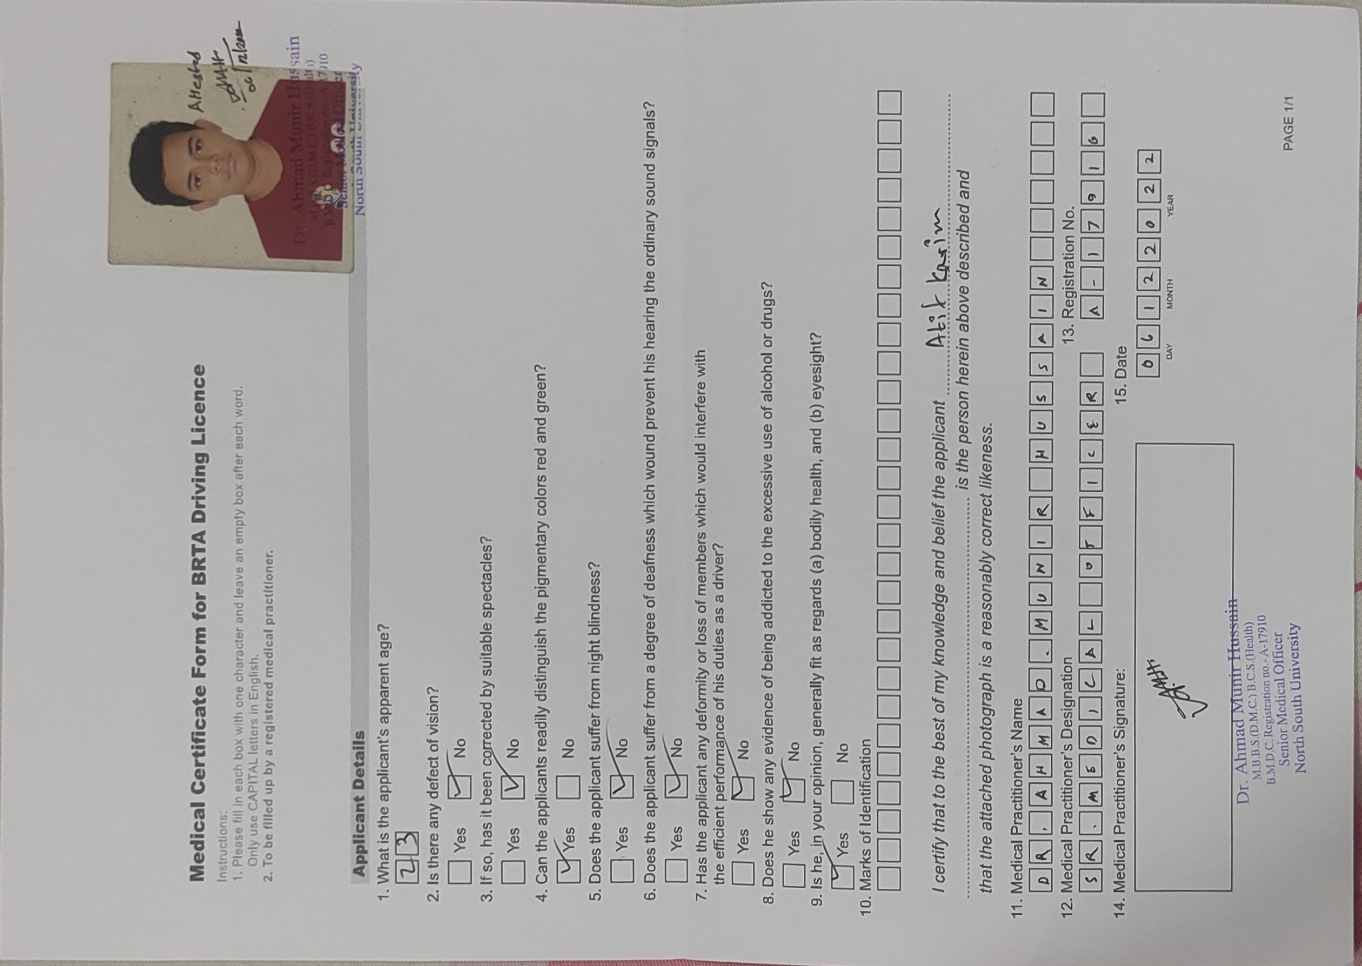 Attested
06/12/2022
Medical Certificate Form for BRTA Driving Licence
Instructions:
1. Please fill in each box with one character and leave an empty box after each word.
Only use CAPITAL letters in English.
2. To be filled up by a registered medical practitioner.
Dr. Ahmad Munir Hussain
M.B.B.S.(D.M.C.) B.C.S.(Health)
B.M.D.C. Registration no.- A-17910
Senior Medical Officer
North South University
Applicant Details
1. What is the applicant's apparent age?
23
2. Is there any defect of vision?
Yes No
3. If so, has it been corrected by suitable spectacles?
Yes No
4. Can the applicants readily distinguish the pigmentary colors red and green?
Yes No
5. Does the applicant suffer from night blindness?
Yes No
6. Does the applicant suffer from a degree of deafness which wound prevent his hearing the ordinary sound signals?
Yes No
7. Has the applicant any deformity or loss of members which would interfere with
the efficient performance of his duties as a driver?
Yes No
8. Does he show any evidence of being addicted to the excessive use of alcohol or drugs?
Yes No
9. Is he, in your opinion, generally fit as regards (a) bodily health, and (b) eyesight?
Yes No
10. Marks of Identification
I certify that to the best of my knowledge and belief the applicant Atif Karim
is the person herein above described and
that the attached photograph is a reasonably correct likeness.
11. Medical Practitioner's Name
DR. AHMAD. MUNIR HUSSAIN
12. Medical Practitioner's Designation 13. Registration No.
SR. MEDICAL OFFICER A-17910
14. Medical Practitioner's Signature: 15. Date
06122022
DAY MONTH YEAR
Dr. Ahmad Munir Hussain
M.B.B.S.(D.M.C.) B.C.S.(Health)
B.M.D.C. Registration no.- A-17910
Senior Medical Officer
North South University
PAGE 1/1